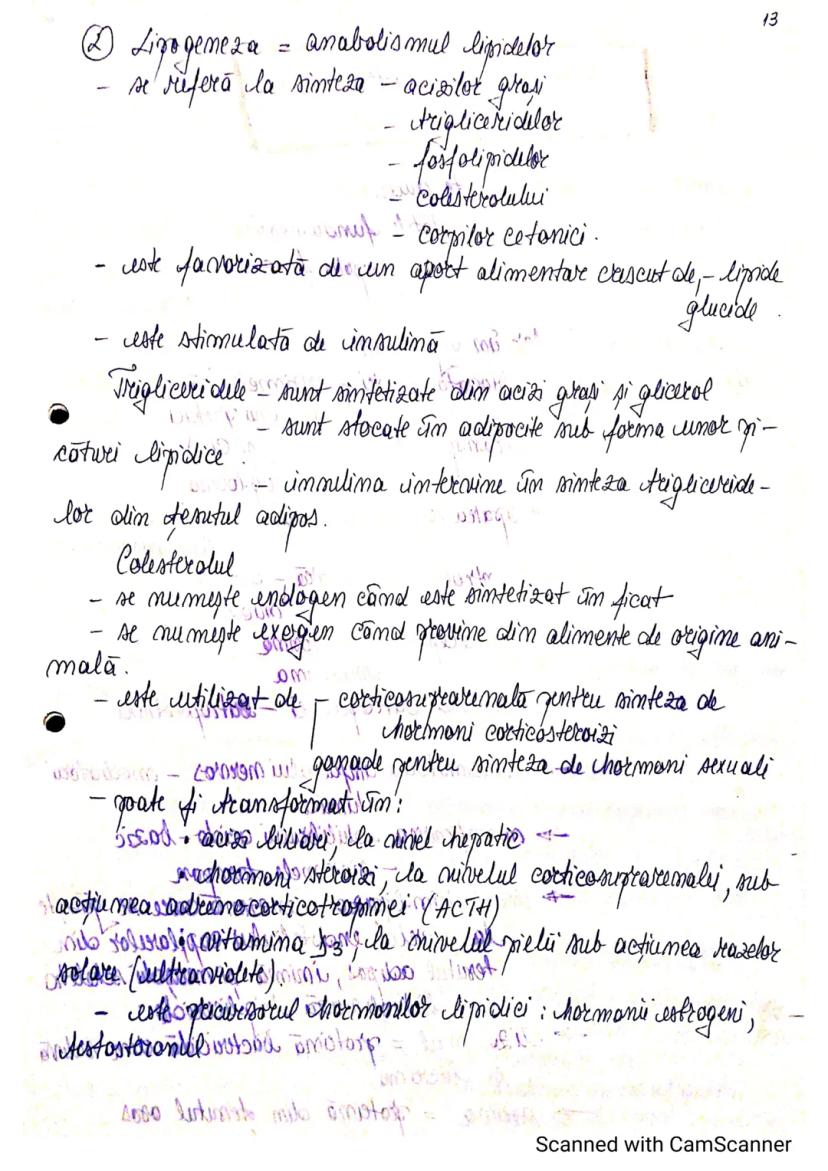 13
② Lipogeneza = anabolismul lipidelor
- se referă la sinteza - acizilor grași
- trigliceridelor
- fosfolipidelor
- colesterolului
- corpilor cetonici.
- este favorizată de un aport alimentar crescut de, - lipide
glucide.
- este stimulată de insulină
Trigliceridele - sunt sintetizate din acizi grași și glicerol
- sunt stocate în adipocite sub forma unor pi-
cături lipidice.
- insulina intervine în sinteza trigliceride-
lor din țesutul adipos.
Colesterolul
- se numește endogen când este sintetizat în ficat
- se numește exogen când provine din alimente de origine ani-
mală.
- este utilizat de - corticosuprarenală pentru sinteza de
hormoni corticosteroizi
gonade pentru sinteza de hormoni sexuali
- poate fi transformat în:
• acizi biliari, la nivel hepatic
• hormoni steroizi, la nivelul corticosuprarenalei, sub
acțiunea adrenocorticotropinei (ACTH)
• vitamina D3, la nivelul pielii sub acțiunea razelor
solare (ultraviolete)
- este precursorul hormonilor lipidici: hormonii estrogeni,
testosteronul
Scanned with CamScanner